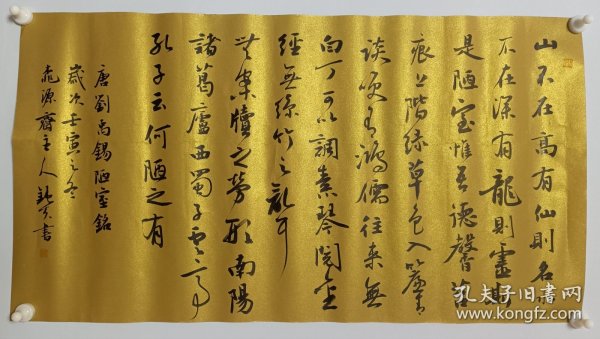 山不在高有仙則名水
不在深有龍則靈斯
是陋室惟吾德馨苔
痕上階綠草色入簾青
談笑有鴻儒往來無
白丁可以調素琴閱金
經無絲竹之亂耳
無案牘之勞形南陽
諸葛廬西蜀子雲亭
孔子云何陋之有
唐劉禹錫陋室銘
歲次壬寅之冬
源齋主人書
孔夫子旧书网
www.kongfz.com